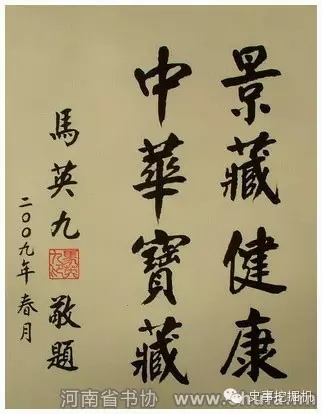 景藏健康
中華寶藏
馬英九 敬題
二〇〇九年 春月
河南省书协
挖掘机